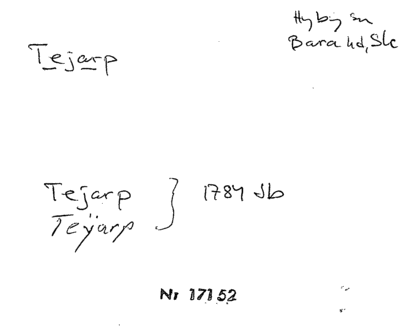 Hyby sn
Bara hd, Sk
Tejarp
Tejarp } 1784 Jb
Teÿarp
Nr 17152